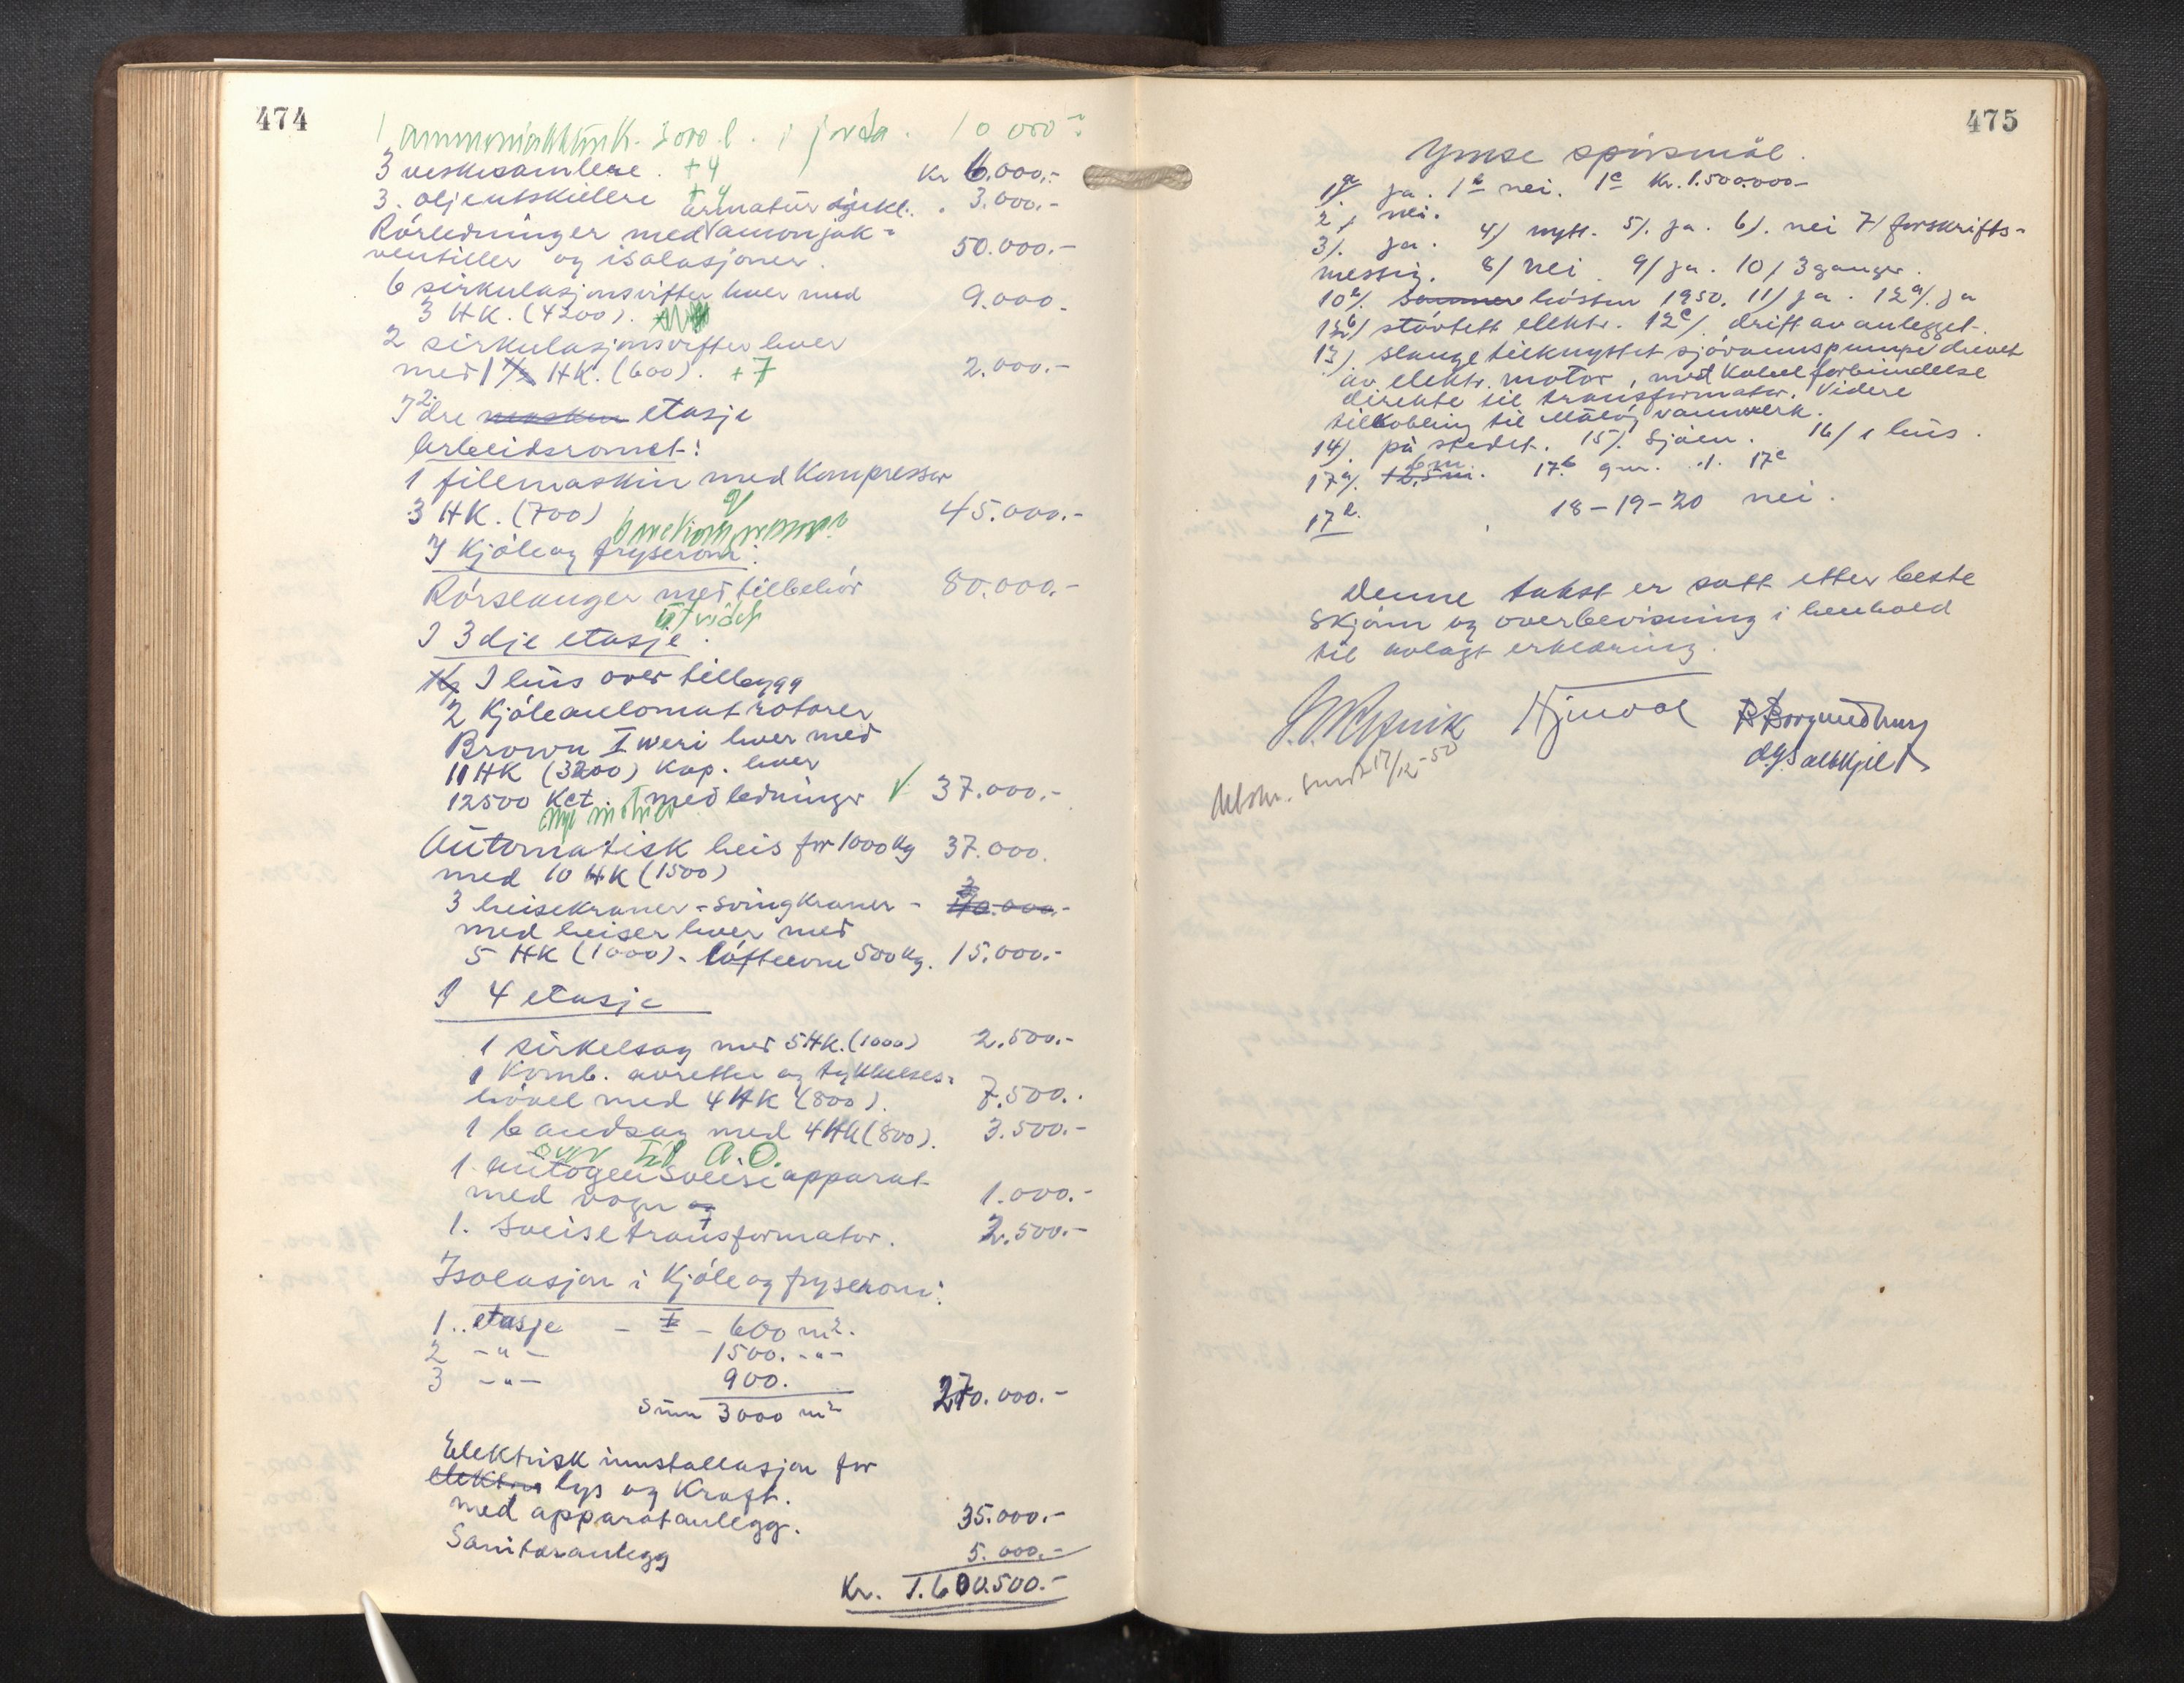 474
1 ammoniakktank. 3000 l. i jorda. 10 000
3 veskesamlere. +4 Kr 6.000.-
3. oljeutskillere +4 armatur inkl. 3.000.-
Rörledninger med amonjak=
ventiller og isolasjoner. 50.000.-
6 sirkulasjonsvifter hver med 9.000.
3 HK. (4200).
2 sirkulasjonsvifter hver
med 1 HK. (600). +7 2.000.-
I 2dre maskin etasje
Arbeidsromet:
1 filemaskin med Kompressor
3 HK. (700) 45.000.-
I Kjöle og fryserom:
Rörslanger med tilbehör 80.000.-
utvidet
I 3dje etasje.
I hus over tilbygg
2 Kjöleautomat rotorer
Brown Boveri hver med
11 HK (3200) Kap. hver
12500 Kct. med ledninger ✓ 37.000.-
nye motorer
Automatisk heis for 1000 kg 37.000.
med 10 HK (1500)
3 heisekraner - svingkraner - 40.000.-
med heiser hver med
5 HK (1000). löfteevne 500 kg. 15.000.-
I 4 etasje
1 sirkelsag med 5 HK. (1000) 2.500.-
1 Komb. avretter og tykkelses=
hövel med 4 HK (800). 7.500..
1 bandsag med 4 HK (800). 3.500.-
over til A.O.
1 autogen sveiseapparat
med vogn og 1.000.-
1. Sveisetransformator. 2.500.-
Isolasjon i Kjöle og fryserom:
1.. etasje - I - 600 m2.
2 -"- 1500. -"-
3 -"- 900.
Sum 3000 m2 270.000.-
Elektrisk innstallasjon for
elektris lys og Kraft.
med apparatanlegg. 35.000.-
Sanitæranlegg 5.000.-
Kr. 1.600.500.-
475
Ymse spörsmål.
1a ja. 1b nei. 1c Kr. 1.500.000-
2/ nei.
3/. ja. 4/ nytt. 5/. ja. 6/. nei 7/ forskrifts-
messig. 8/ nei 9/ ja. 10/ 3 ganger.
10b/. sommer hösten 1950. 11/ ja. 12a/. ja
12b/ stövtett elektr. 12c/. drift av anlegget.
13/. slange tilknyttet sjövannspumpe drevet
av elektr. motor, med Kabelforbindelse
direkte til transformator. Videre
tilkobling til Måløy vannverk.
14/. på stedet. 15/. Sjöen. 16/ 1 hus.
17a/. 12,5 m. 6 m 17b 9 m. 17c
17d. 18-19-20 nei.
Denne takst er satt etter beste
skjönn og overbevisning i henhold
til avlagt erklæring.